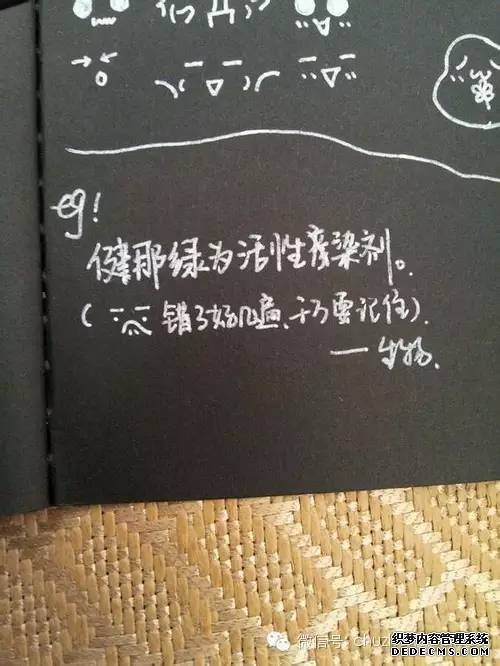 eg!
健那绿为活性废染剂。
(错了好几遍、千万要记住).
——生物.
微信号: chuz
织梦内容管理系统
DEDECMS.COM